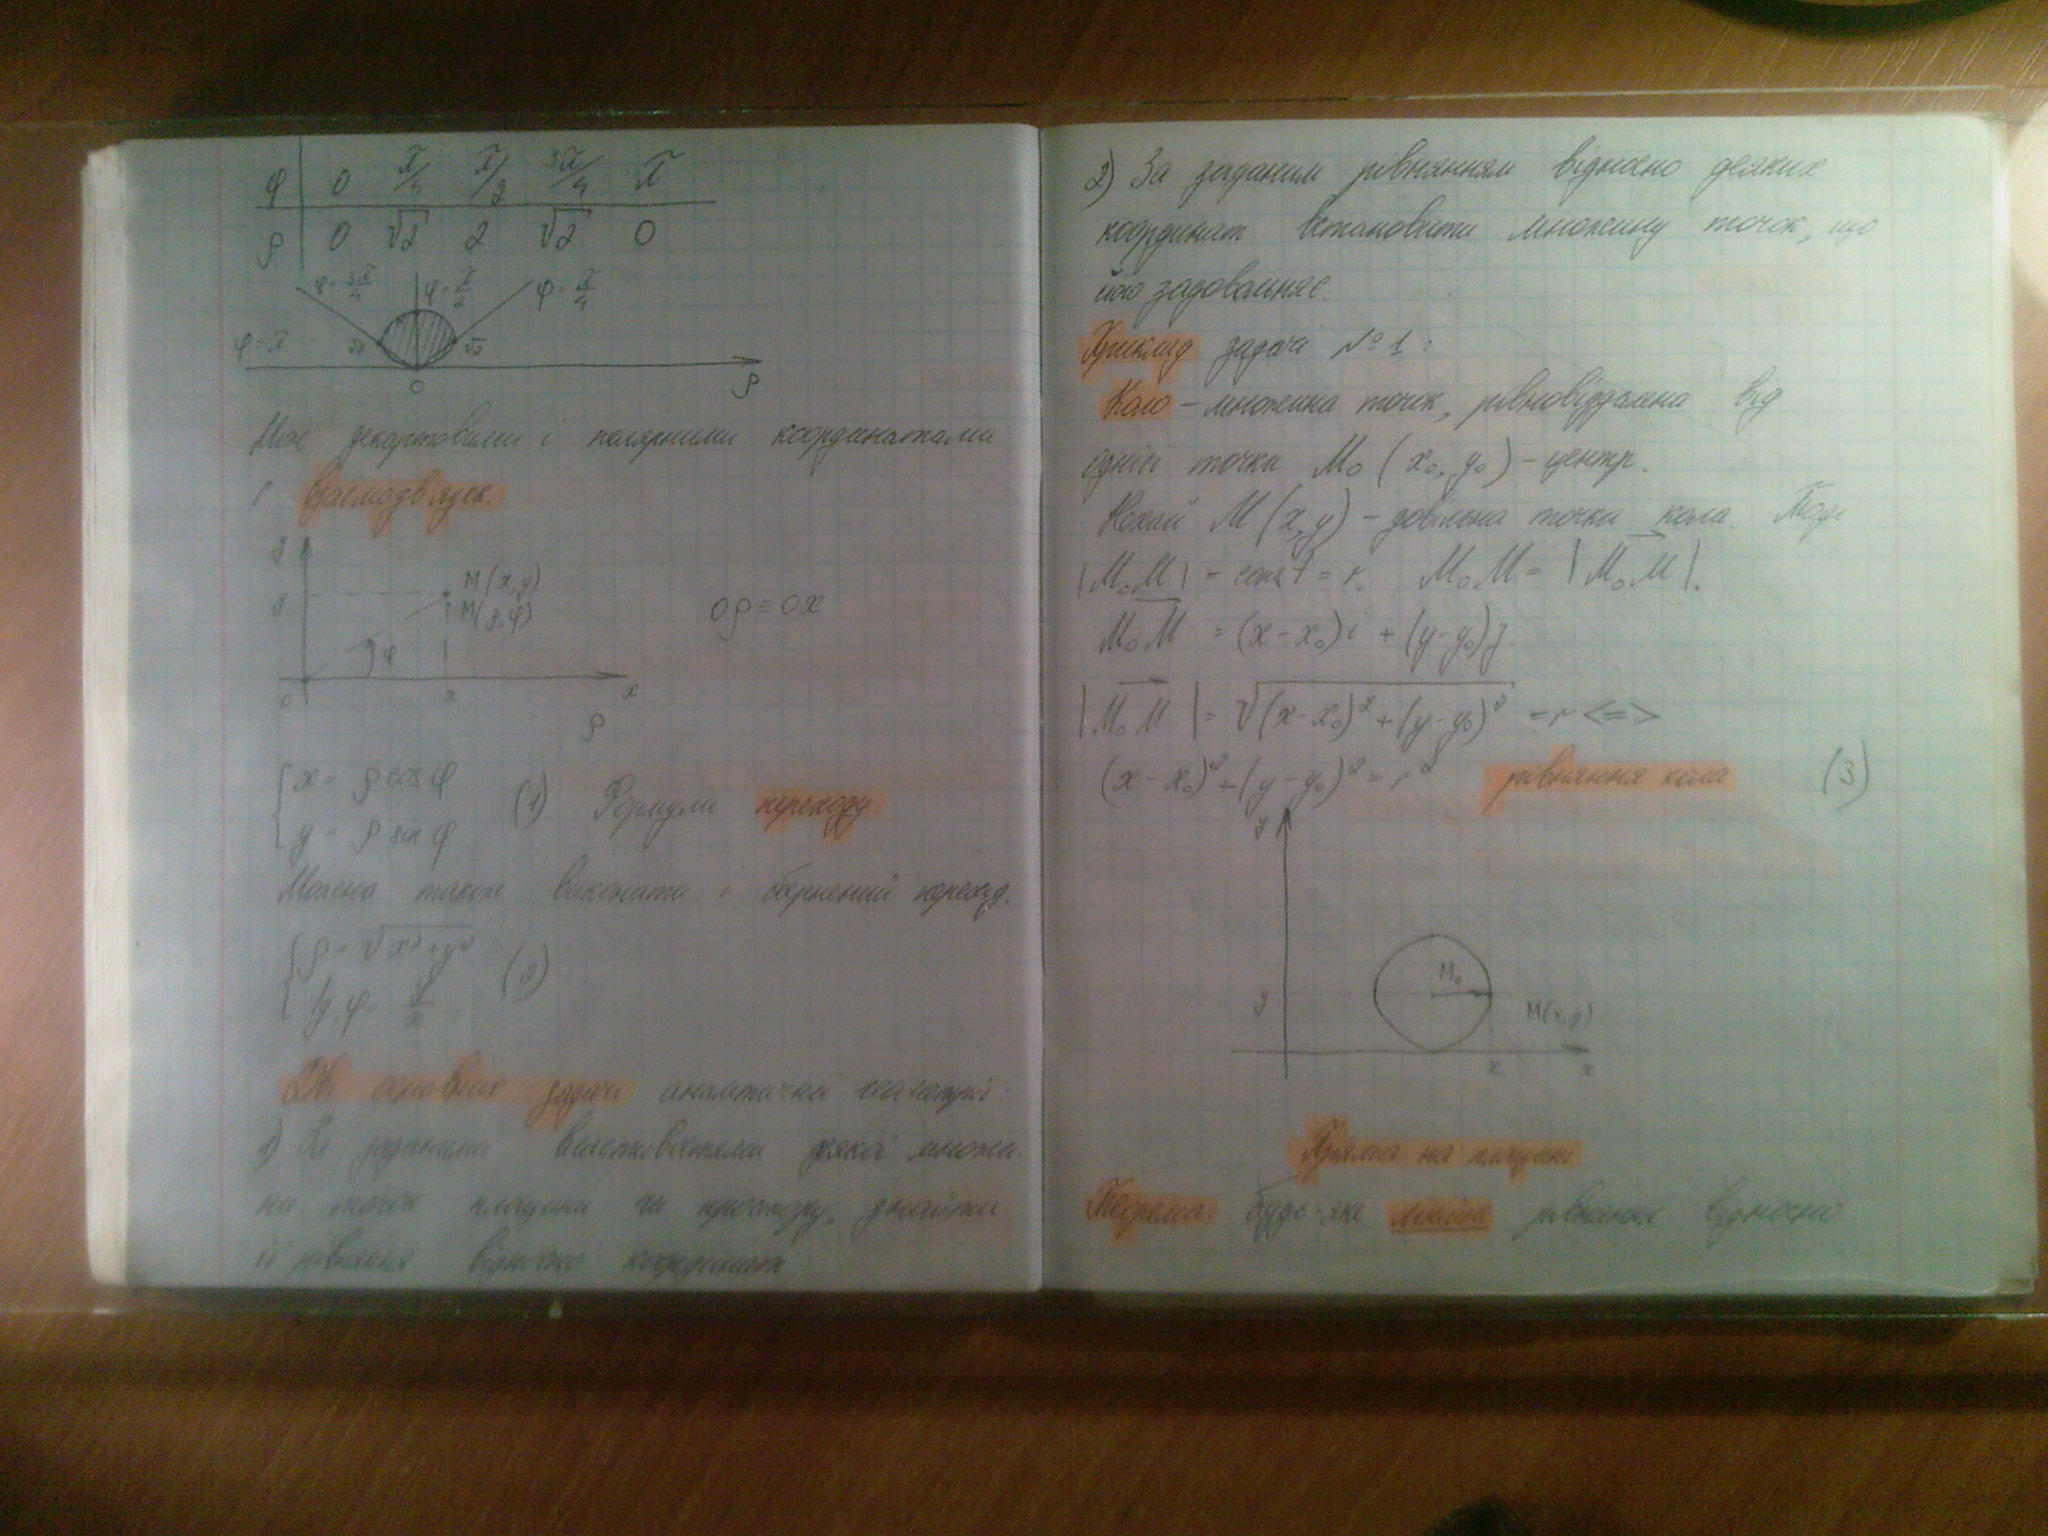 φ 0 π/4 π/2 3π/4 π
ρ 0 √2 2 √2 0
φ = 3π/4 φ = π/2 φ = π/4
φ = π √2 √2
0 ρ
Між декартовими і полярними координатами
є взаємозв'язок.
y
y M(x,y)
M(ρ,φ)
Oρ ≡ Ox
φ
0 x x
ρ
x = ρ cos φ
y = ρ sin φ
(1) Формули переходу
Можна також виконати і обернений перехід.
ρ = √x²+y²
tg φ = y/x
(2)
Дві основних задачі аналітичної геометрії:
1) За заданими властивостями деякої множи-
ни точок площини чи простору, знайти
її рівняння відносно координат
2) За заданим рівнянням відносно деяких
координат встановити множину точок, що
його задовольняє.
Приклад задачі №1:
Коло – множина точок, рівновіддалена від
однієї точки M₀ (x₀, y₀) – центр.
Нехай M (x, y) – довільна точка кола. Тоді
|M₀M| = const = r. M₀M = |M₀M|.
M₀M = (x-x₀)i + (y-y₀)j.
|M₀M| = √(x-x₀)²+(y-y₀)² = r <=>
(x-x₀)²+(y-y₀)² = r² рівняння кола (3)
y
M₀
y M(x,y)
x x
Пряма на площині
Теорема: будь-яке лінійне рівняння відносно